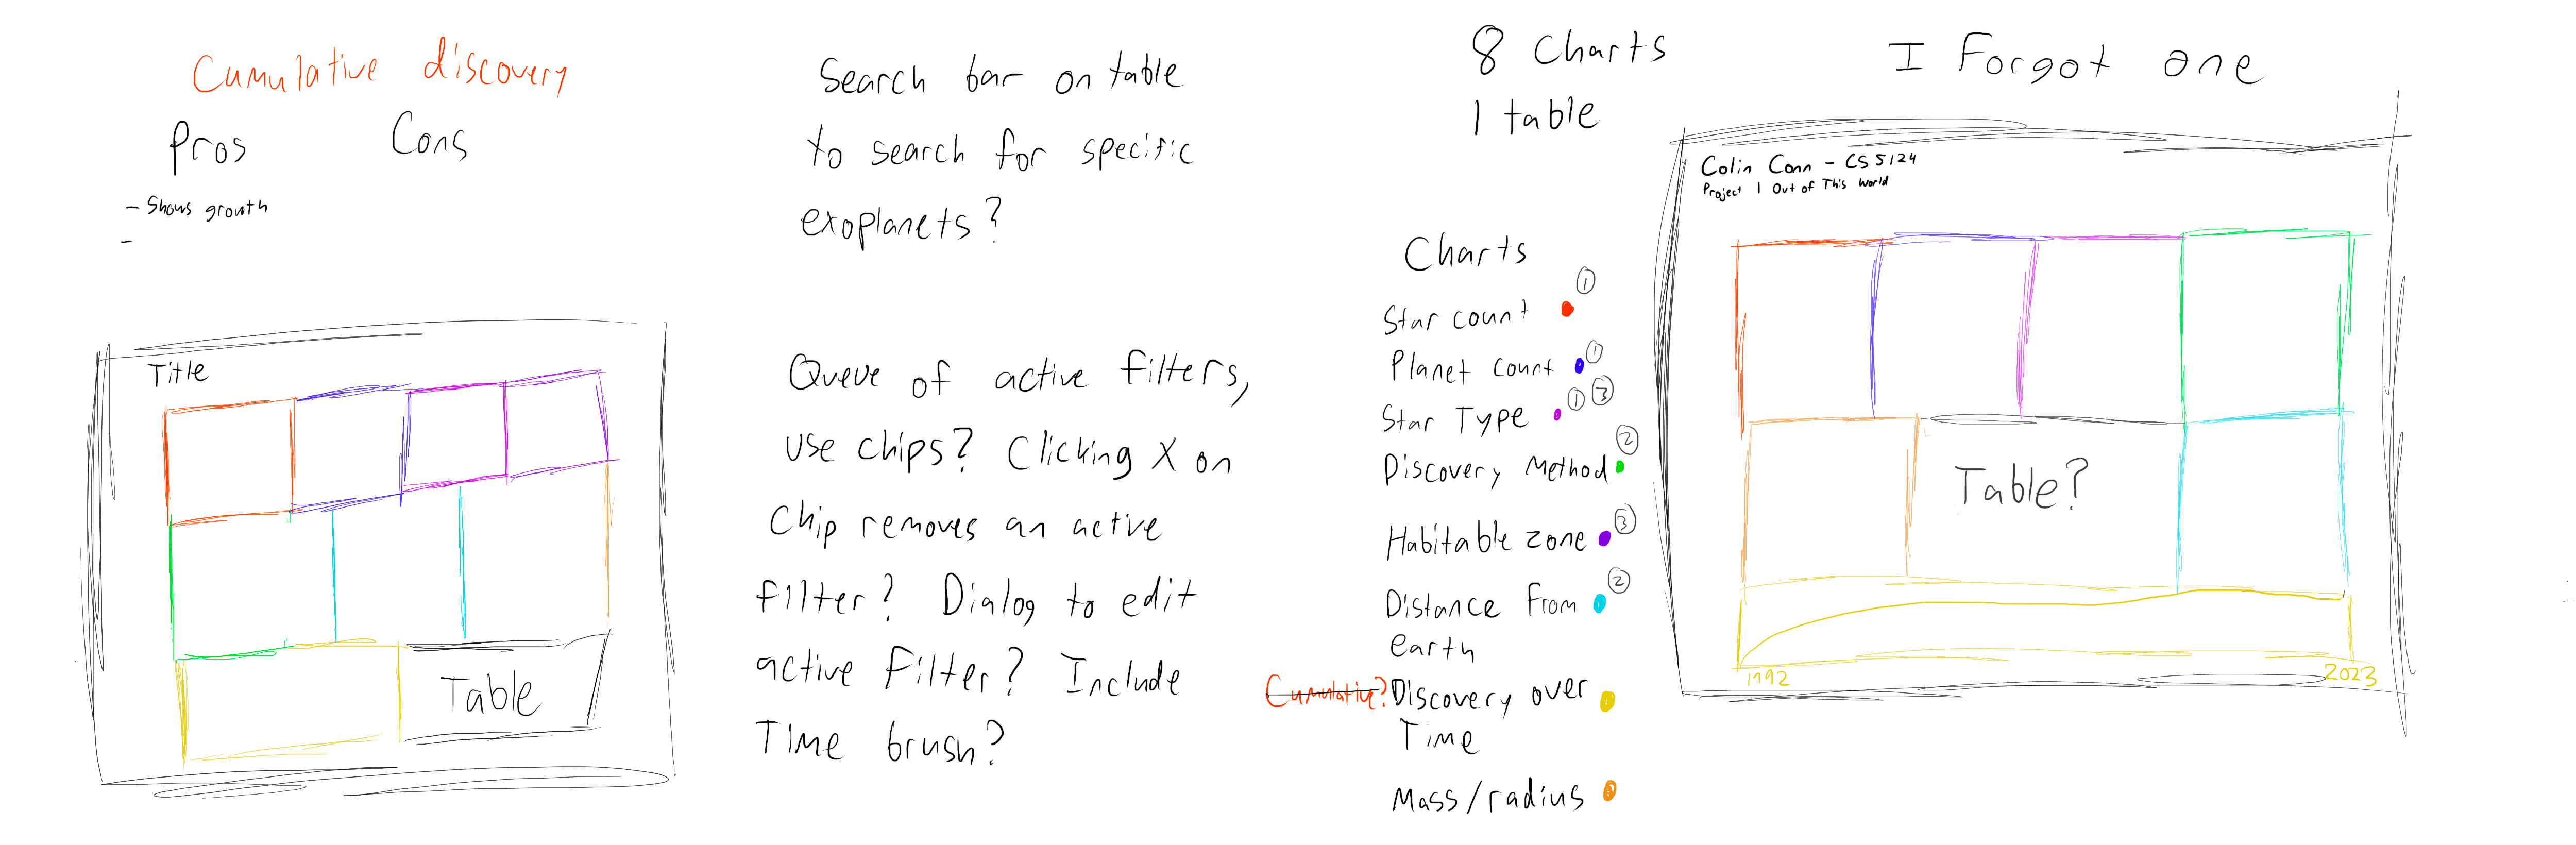 Cumulative discovery
Pros
Cons
- Shows growth
-
Title
Table
Search bar on table
to search for specific
exoplanets?
Queue of active filters,
use chips? Clicking X on
chip removes an active
filter? Dialog to edit
active filter? Include
Time brush?
8 Charts
1 table
Charts
Star count ①
Planet count ①
Star Type ① ③
Discovery Method ②
Habitable zone ③
Distance From ②
earth
Cumulative? Discovery over
Time
Mass/radius
I Forgot one
Colin Conn - CS 5124
Project 1 Out of This World
Table?
1992
2023